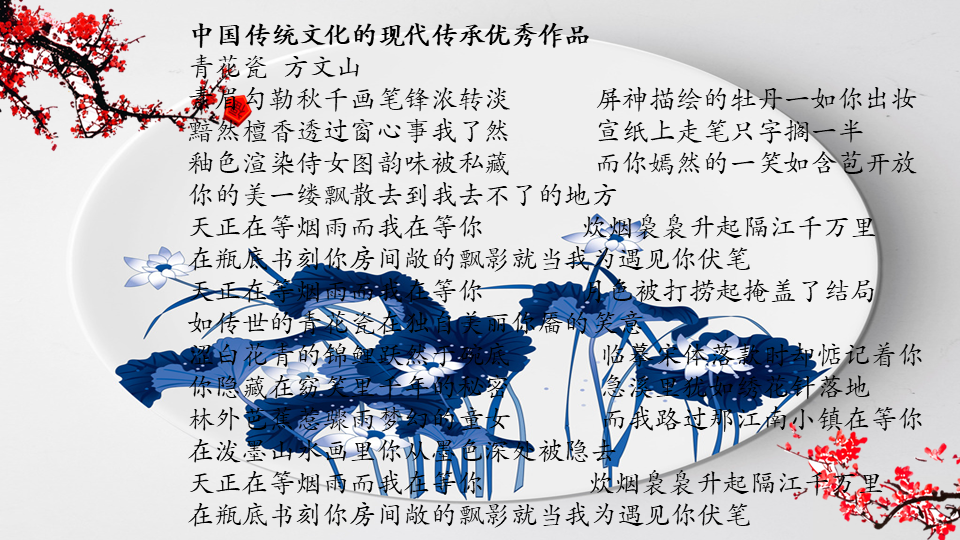 中国传统文化的现代传承优秀作品
青花瓷 方文山
素眉勾勒秋千画笔锋浓转淡 屏神描绘的牡丹一如你出妆
黯然檀香透过窗心事我了然 宣纸上走笔只字搁一半
釉色渲染侍女图韵味被私藏 而你嫣然的一笑如含苞开放
你的美一缕飘散去到我去不了的地方
天正在等烟雨而我在等你 炊烟袅袅升起隔江千万里
在瓶底书刻你房间敞的飘影就当我为遇见你伏笔
天正在等烟雨而我在等你 月色被打捞起掩盖了结局
如传世的青花瓷在独自美丽你燸的笑意
白花青的锦鲤跃然于碗底 临摹宋体落款时却惦记着你
你隐藏在窈笑里千年的秘密 急溪里犹如绣花针落地
林外芭蕉惹骤雨梦幻的童女 而我路过那江南小镇在等你
在泼墨山水画里你从墨色深处被隐去
天正在等烟雨而我在等你 炊烟袅袅升起隔江千万里
在瓶底书刻你房间敞的飘影就当我为遇见你伏笔